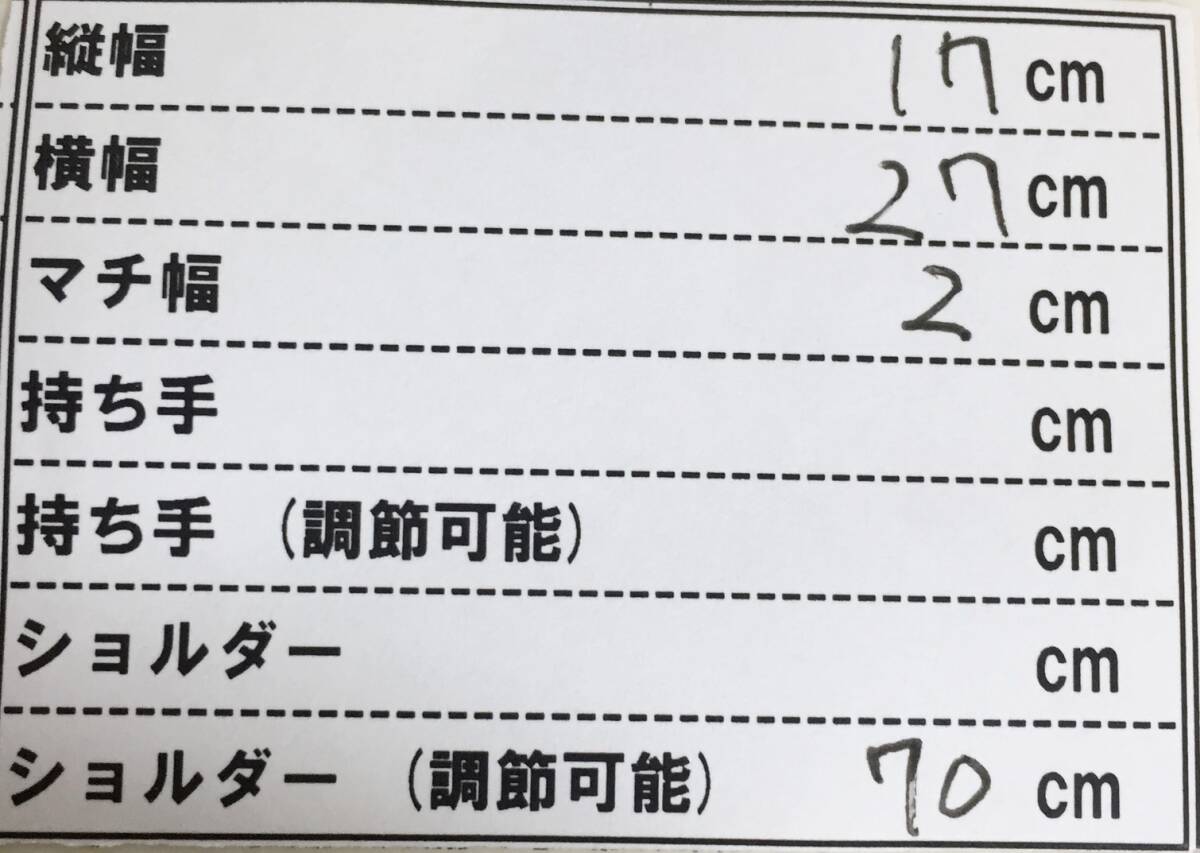 縦幅 17 cm
横幅 27 cm
マチ幅 2 cm
持ち手 cm
持ち手 (調節可能) cm
ショルダー cm
ショルダー (調節可能) 70 cm